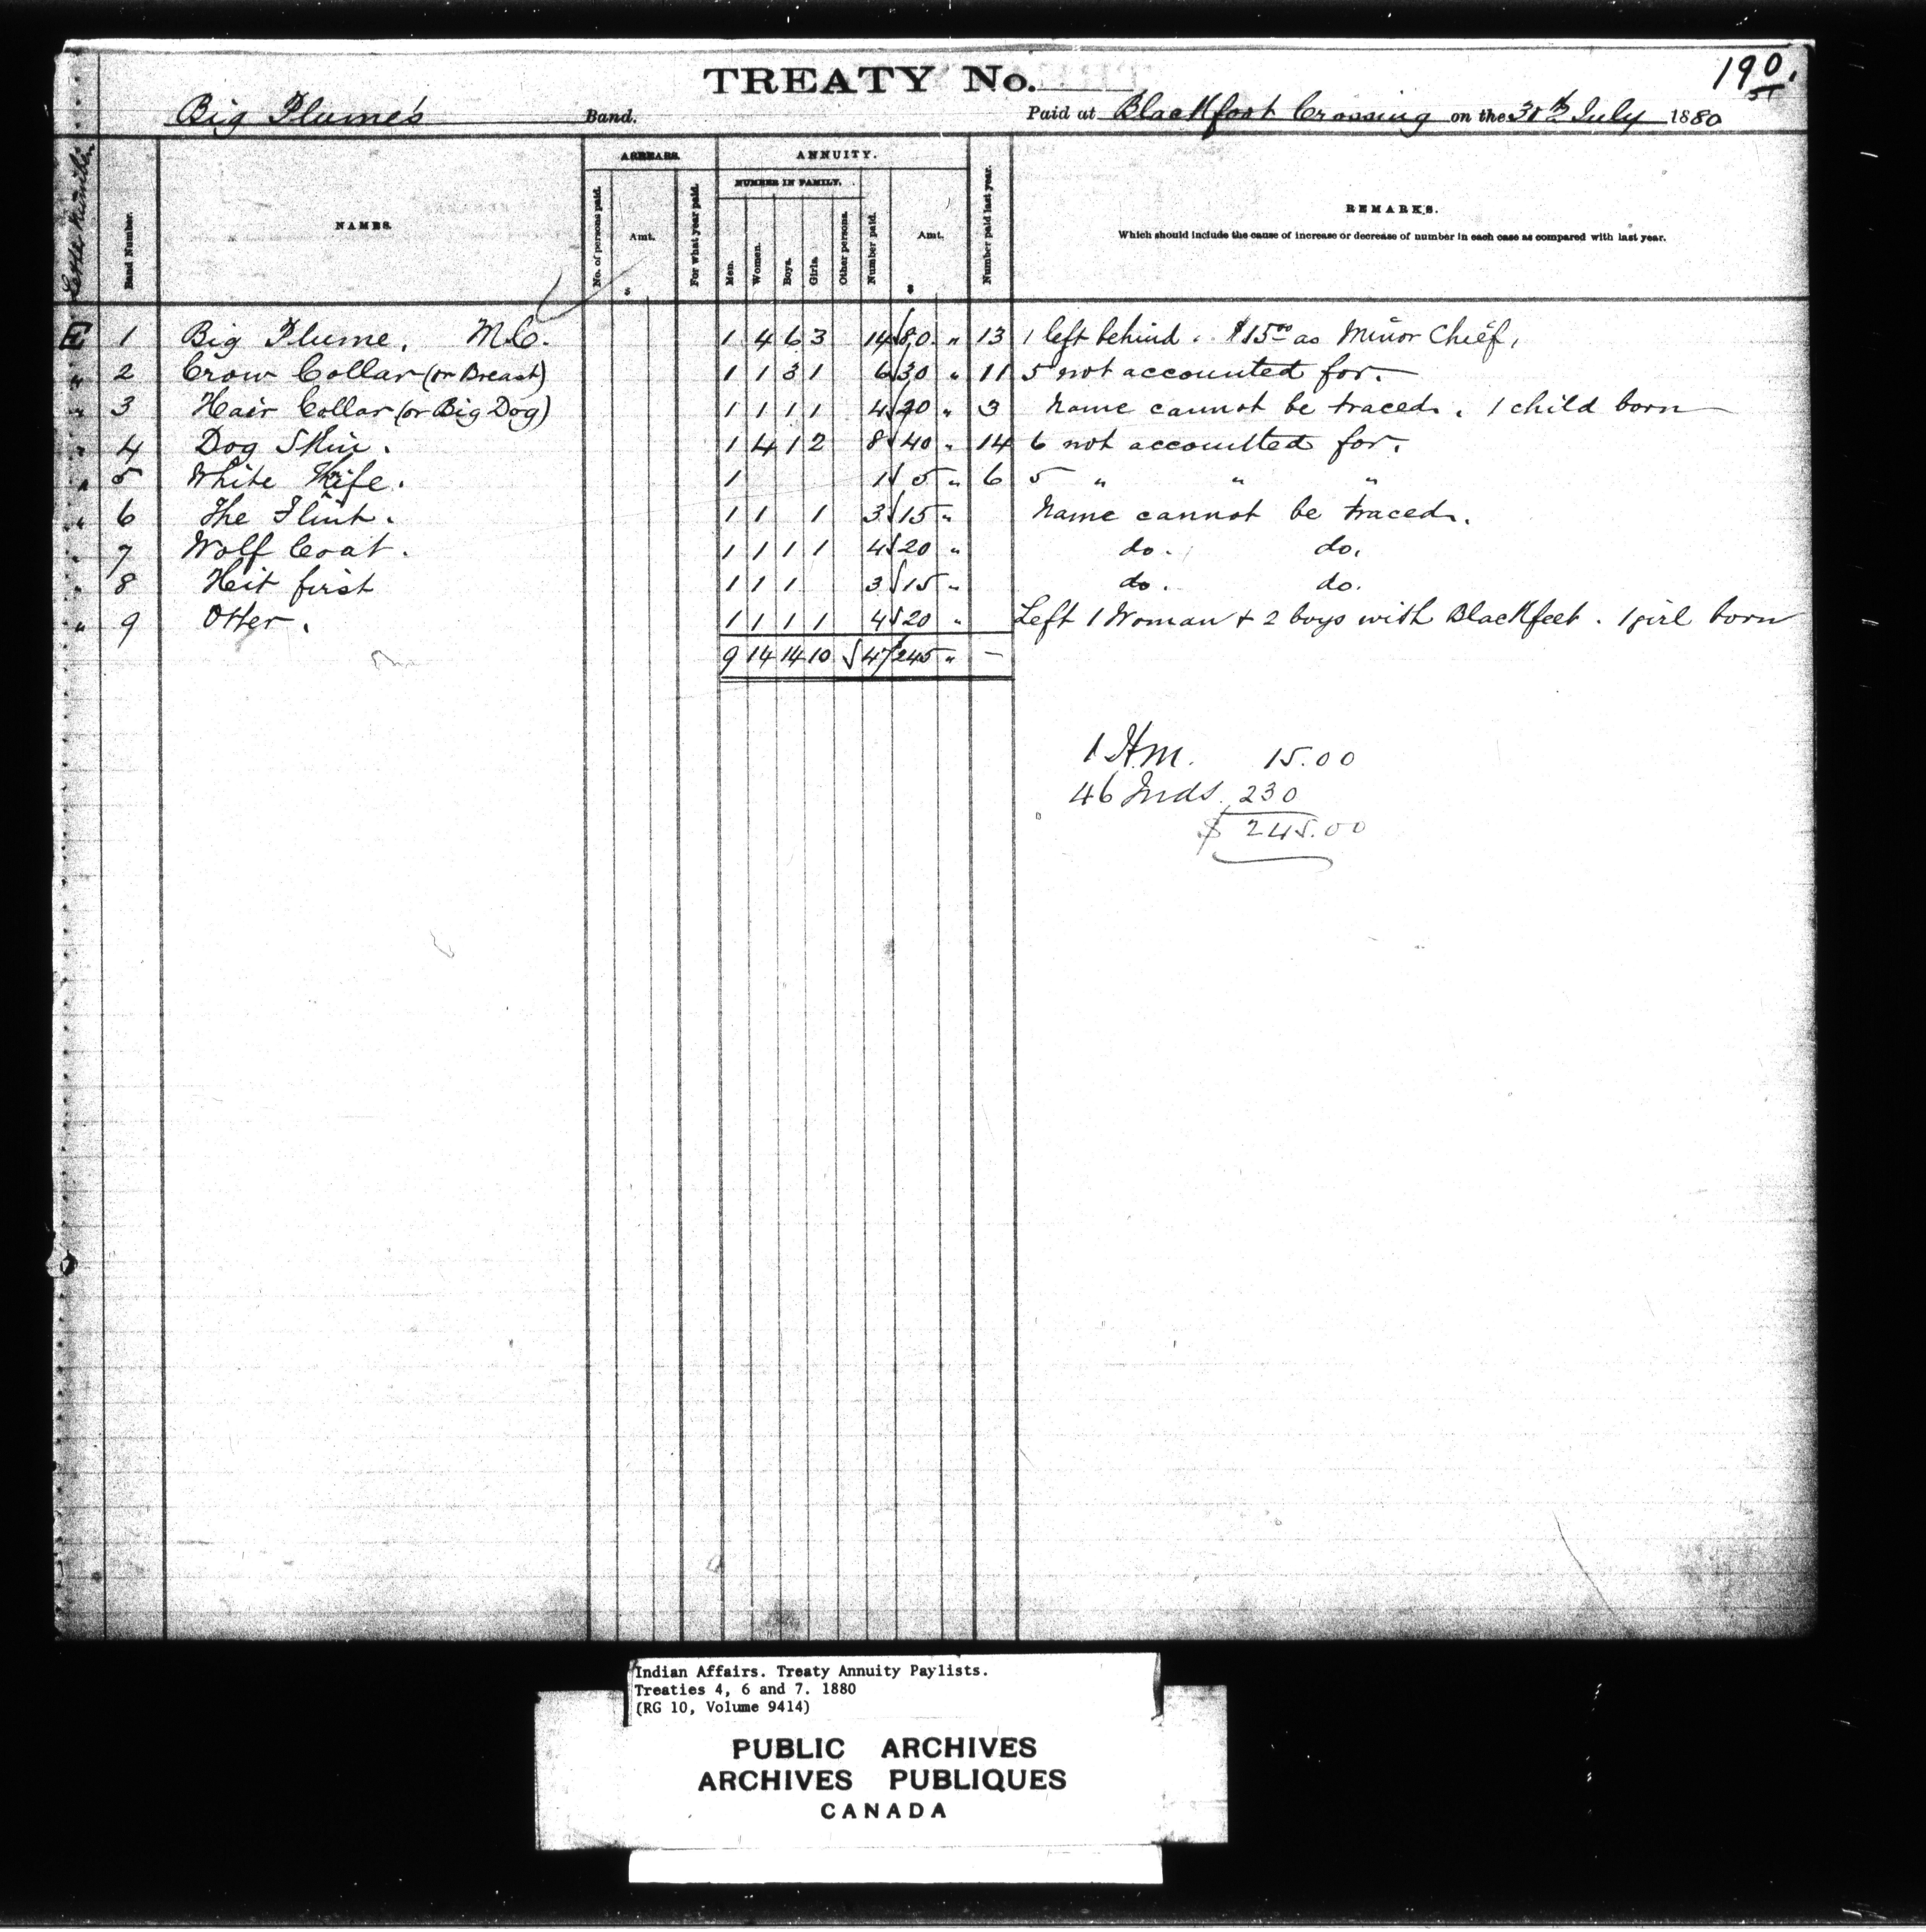 190.
51
TREATY No.
Big Plume's Band. Paid at Blackfoot Crossing on the 31st July 1880
Letter Number.
Band Number.
NAMES.
ARREARS.
No. of persons paid.
Amt.
$
For what year paid.
ANNUITY.
NUMBER IN FAMILY.
Men.
Women.
Boys.
Girls.
Other persons.
Number paid.
Amt.
$
Number paid last year.
REMARKS.
Which should include the cause of increase or decrease of number in each case as compared with last year.
E 1 Big Plume. M.C. 1 4 6 3 14 √ 80 " 13 1 left behind. $15.00 as Minor Chief.
" 2 Crow Collar (or Breast) 1 1 3 1 6 √ 30 " 11 5 not accounted for.
" 3 Hair Collar (or Big Dog) 1 1 1 1 4 √ 20 " 3 Name cannot be traced. 1 child born
" 4 Dog Skin. 1 4 1 2 8 √ 40 " 14 6 not accounted for.
" 5 White 1 1 √ 5 " 6 5 " " "
" 6 The Flint. 1 1 1 3 √ 15 " Name cannot be traced.
" 7 Wolf Coat. 1 1 1 1 4 √ 20 " do. do.
" 8 Heit first 1 1 1 3 √ 15 " do. do.
" 9 Otter. 1 1 1 1 4 √ 20 " Left 1 Woman + 2 boys with Blackfeet. 1 girl born
9 14 14 10 √ 47 $245 " —
1 H.M. 15.00
46 Inds. 230
$ 245.00
Indian Affairs. Treaty Annuity Paylists.
Treaties 4, 6 and 7. 1880
(RG 10, Volume 9414)
PUBLIC ARCHIVES
ARCHIVES PUBLIQUES
CANADA